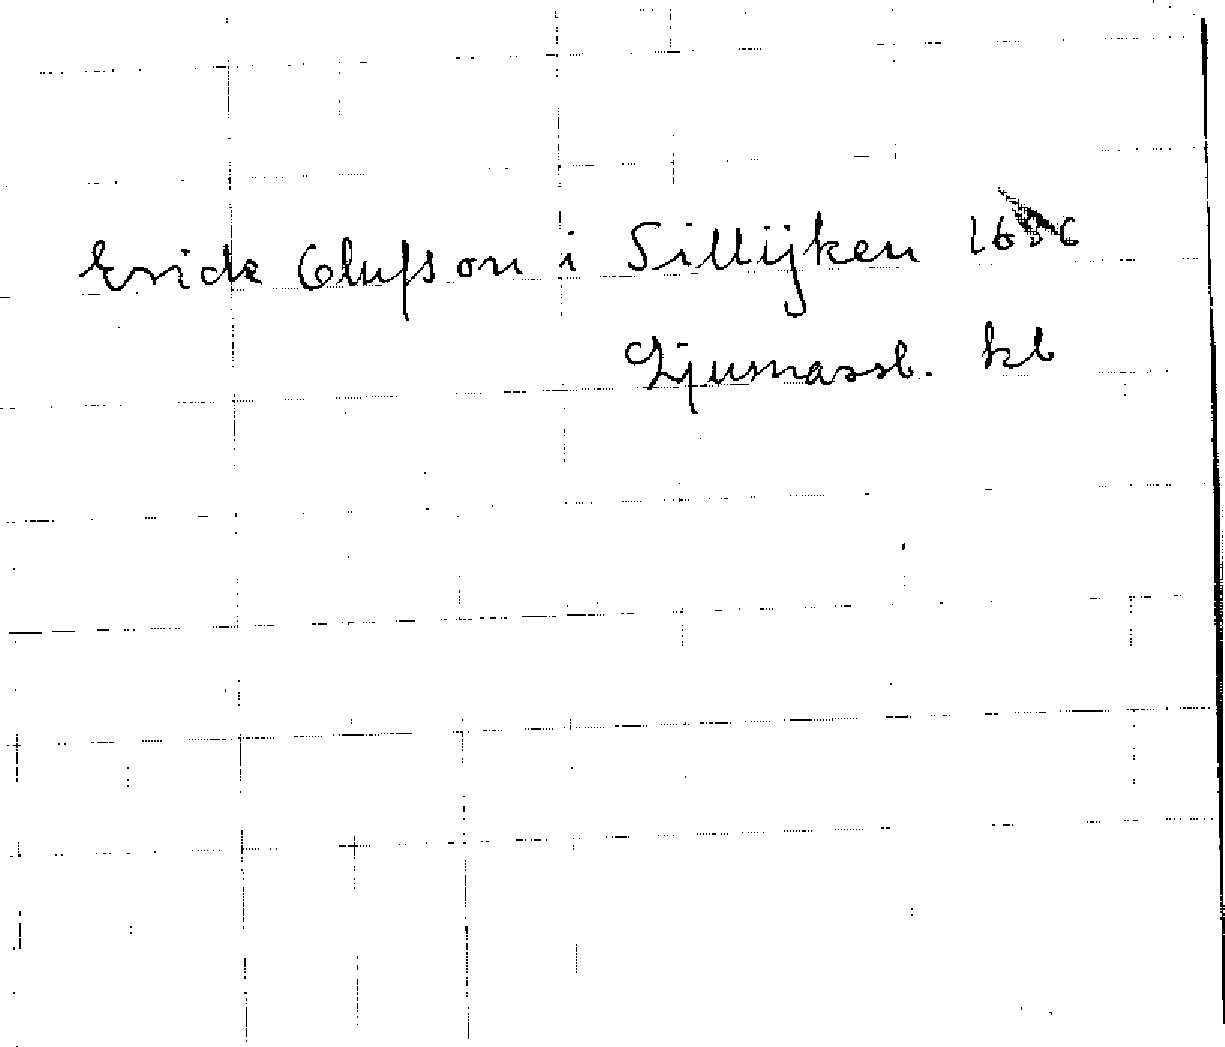 Erick Olufson i Sillijken
Ljusnarsb. kb